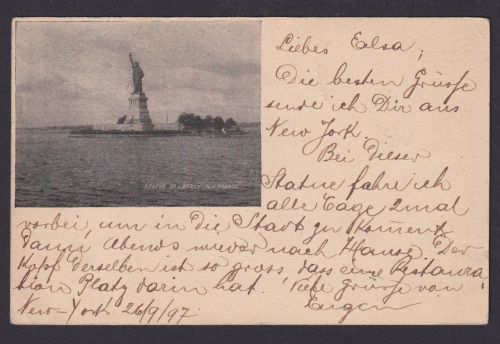 STATUE OF LIBERTY, N.Y. HARBOR.
Liebes Elsa;
Die besten Grüsse
sende ich Dir aus
New York.
Bei dieser
Statue fahre ich
alle Tage 2mal
vorbei, um in die Stadt zu kommen &
dann abends wieder nach Hause. Der
Kopf derselben ist so gross dass eine Restaura
tion Platz darin hat. Viele Grüsse von
New-York 26/9/97. Eugen